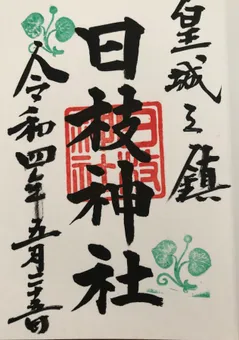 皇城之鎮
日枝神社
日枝神社
令和四年五月二十五日